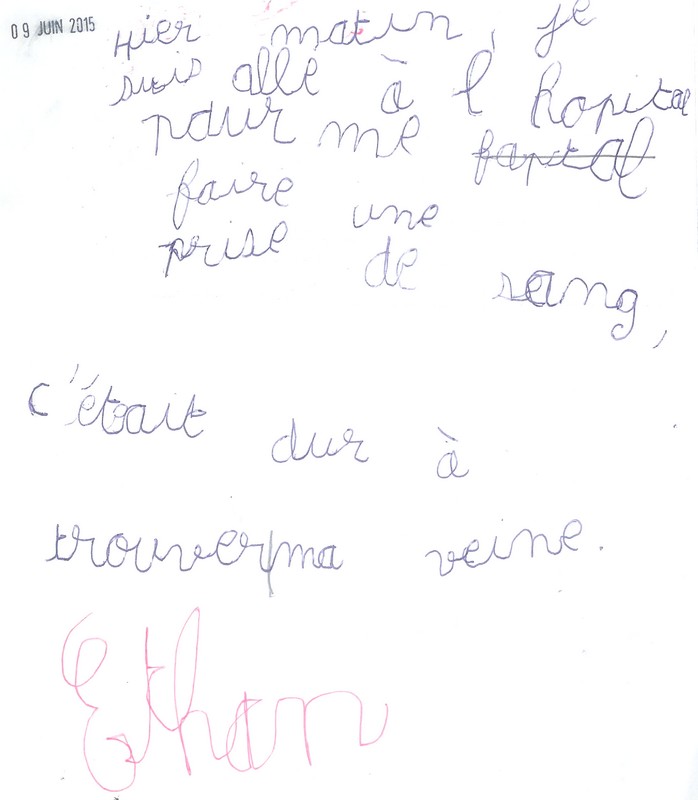 09 JUIN 2015
Hier matin, je
suis allé à l hopital
pour me faptal
faire une
prise de sang,
c'était dur à
trouver/ma veine.
Ethan